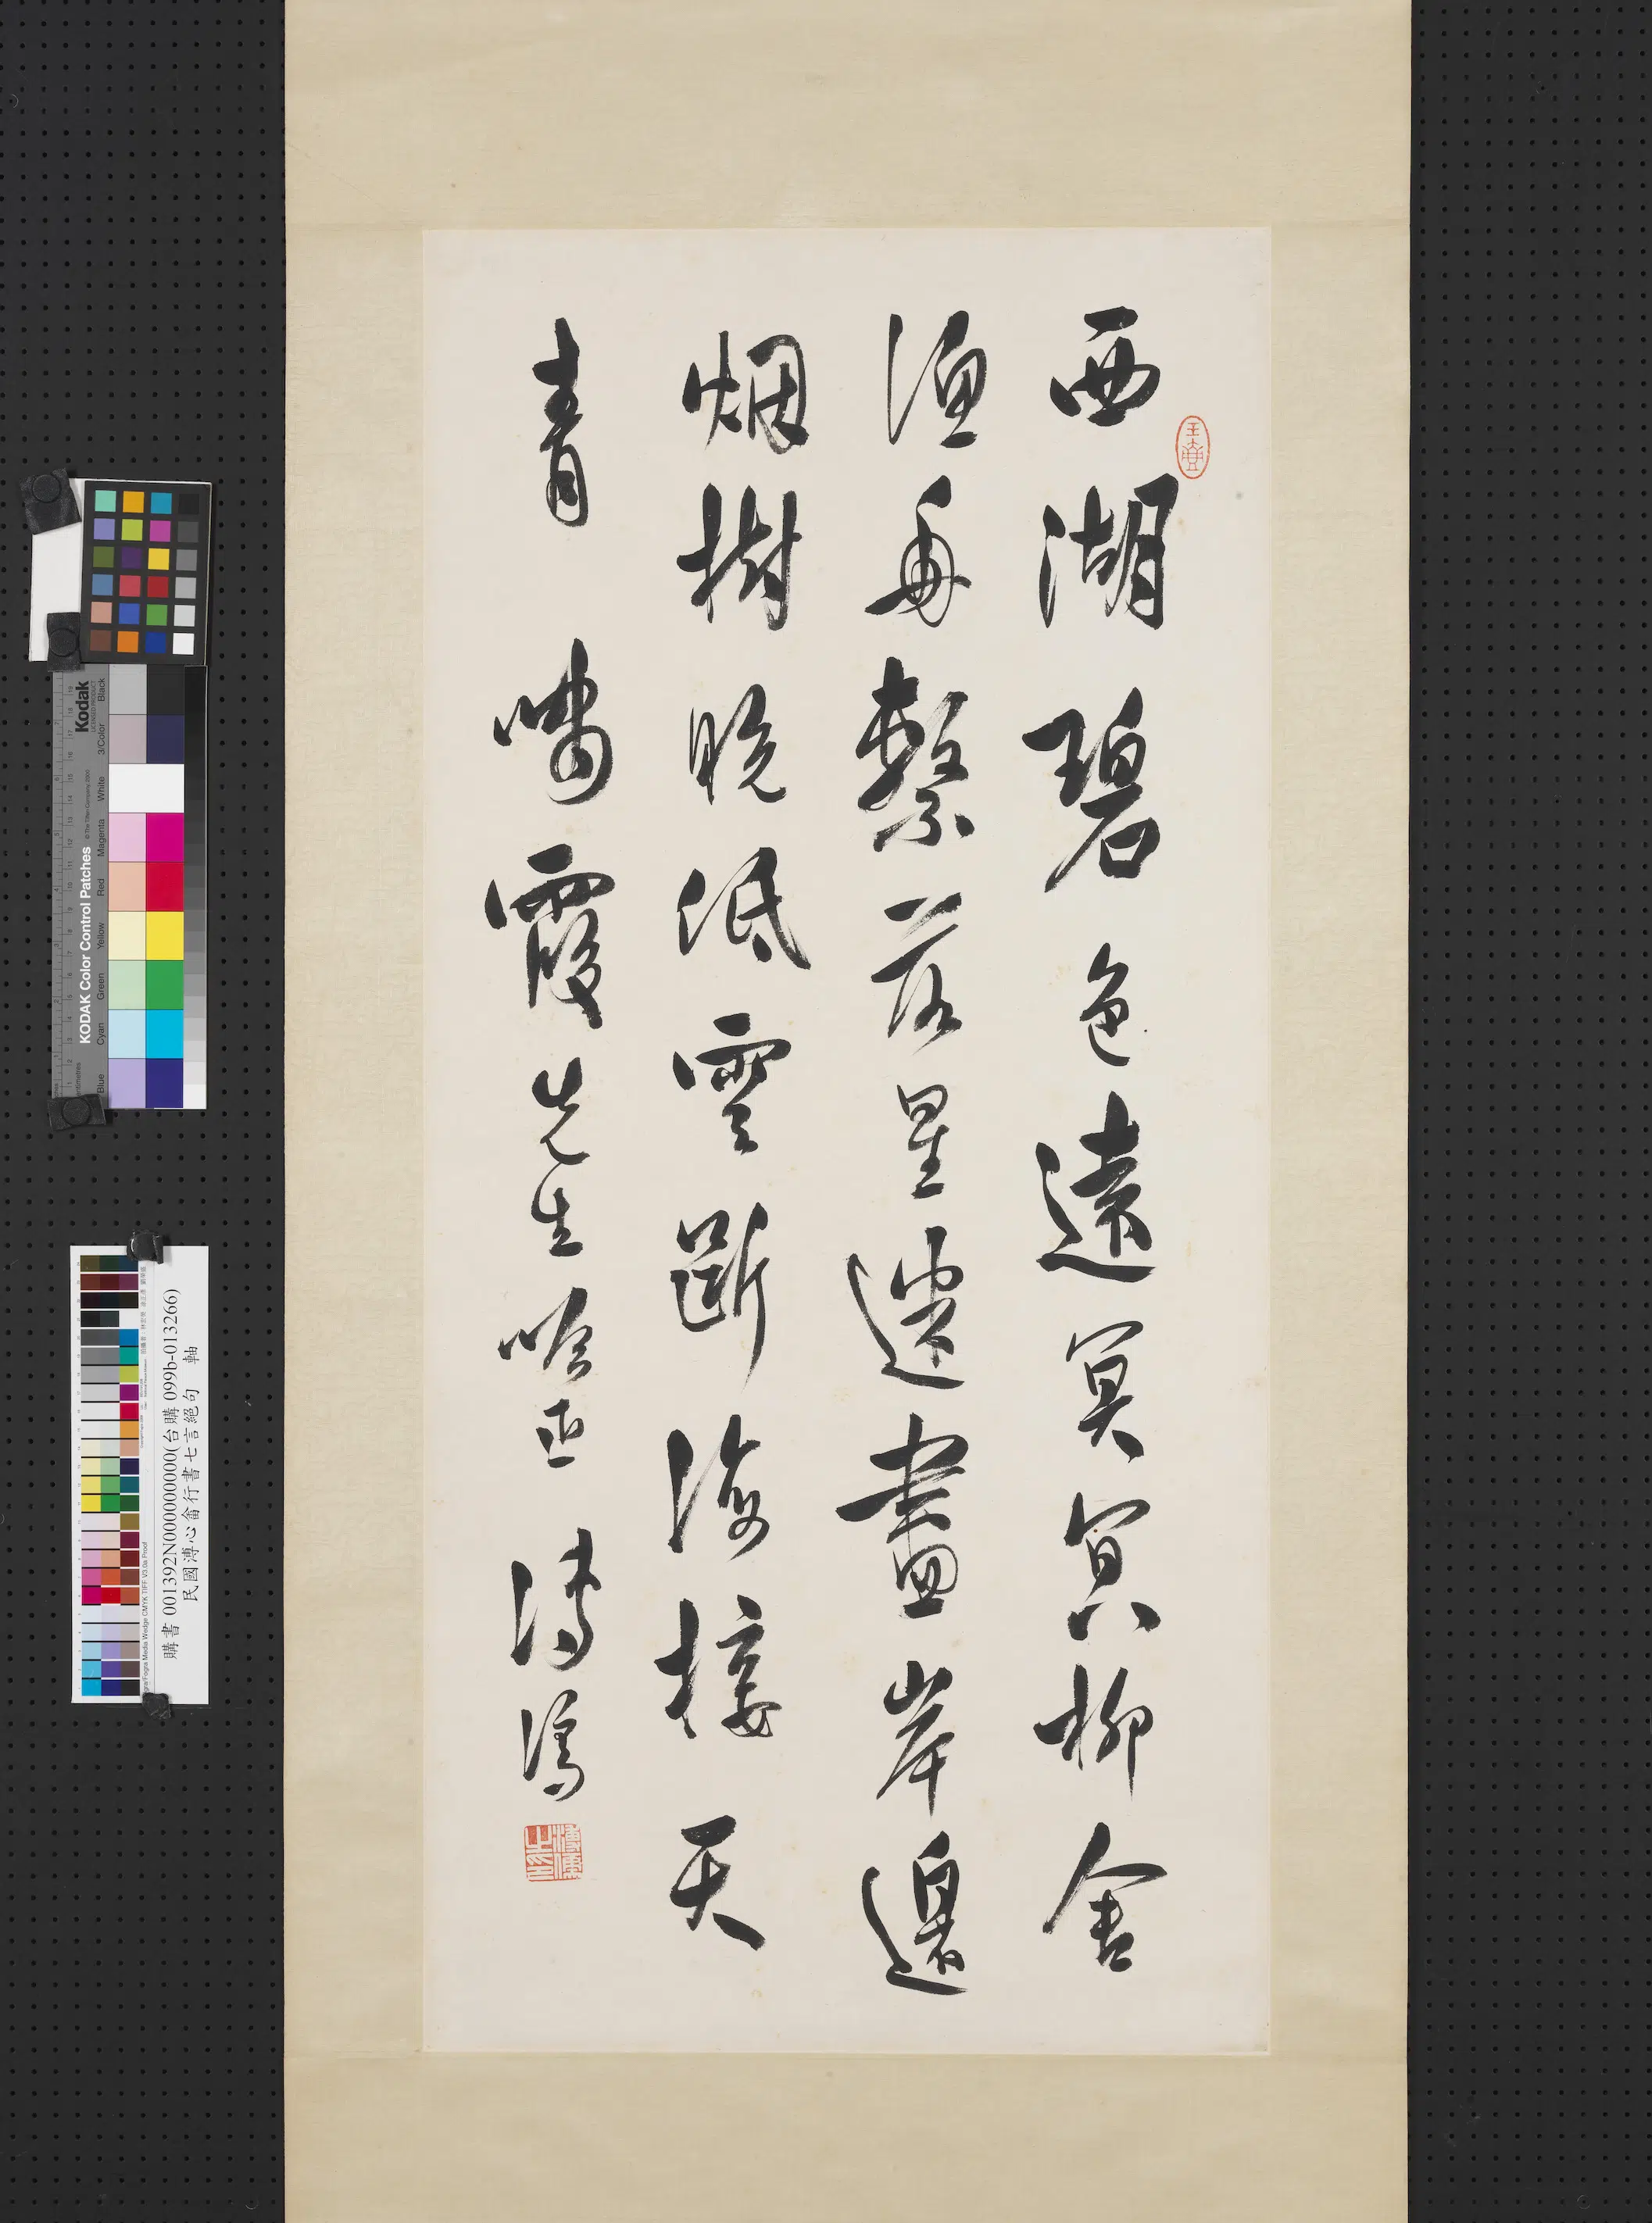 西湖碧色遠冥冥柳舍
漁舟繫落星遙盡岸邊
烟樹晚低雲斷海接天
青 嘯霞先生唫正 溥儒
玉壺
溥儒之印
Kodak
LICENSED PRODUCT
KODAK Color Control Patches
Blue Cyan Green Yellow Red Magenta White 3/Color Black
購書 001392N000000000(台購 099b-013266)
民國溥心畬行書七言絕句 軸